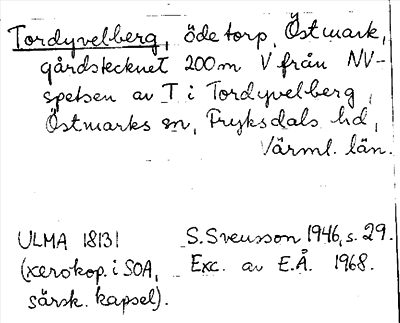 Tordyvelberg, öde torp, Östmark,
gårdstecknet 200 m V från NV-
spetsen av T i Tordyvelberg,
Östmarks sn, Fryksdals hd,
Värml. län.
ULMA 18131 S. Svensson 1946, s. 29.
(xerokop. i SOA, Exc. av E.Å. 1968.
särsk. kapsel).